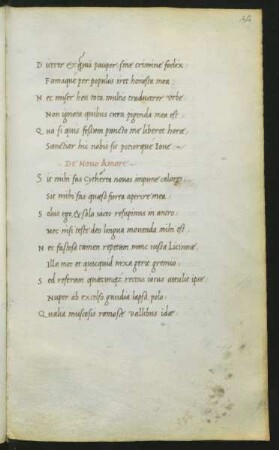 Diceret exigui pauper sine crimine fodex
Famaque per populos iret honesta mea
Nec miser heu tota multis traducerer urbe
Non ignota quibus cura pigenda mea est
Qua si quis festium puncto me liberet horae
Sanctior his nobis sit potiorque Ioue
De Nouo Amore
Sic mihi fas Cytherea nouas impune
Sic mihi fas quaesi furta aperire mea
Solus ego, & sola iaceo resupinus in antro
Nec nisi teste deo lingua mouenda mihi est
Nec fastosa tamen repetam nunc iussa Licinnae
Illa mor et quicquid nexa perit gremio
Sed referam rectus carus attulit ipse
Nuper ab excelso gaudia lapsa polo
Qualia muscosis ramosae uallibus idae